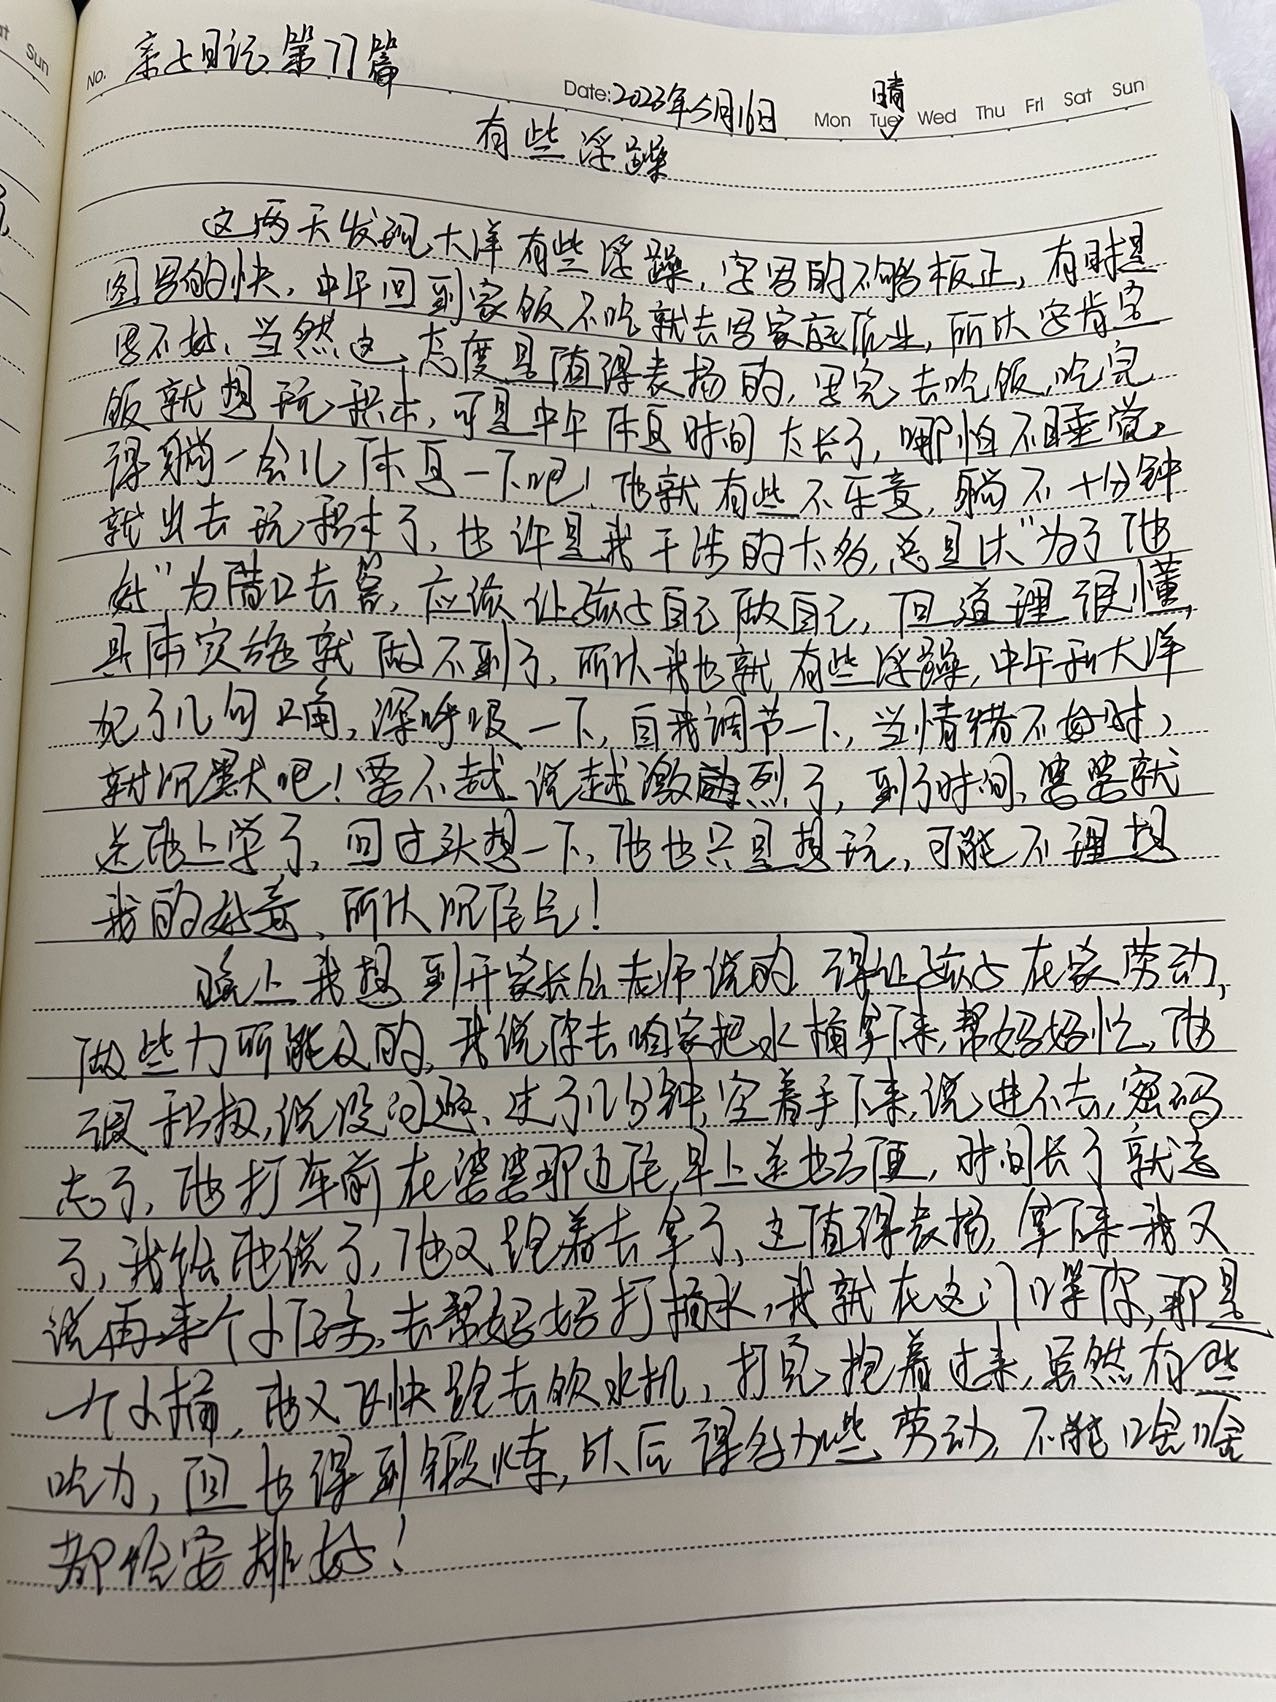 No. 亲子日记 第77篇
Date: 2023年5月16日 晴 Mon Tue Wed Thu Fri Sat Sun
有些浮躁
这两天发现大洋有些浮躁，字写的不够板正，有时是
图写的快，中午回到家饭不吃就去写家庭作业，所以字肯定
写不好、当然这态度是值得表扬的，写完去吃饭，吃完
饭就想玩积木，可是中午休息时间太长了，哪怕不睡觉，
得躺一会儿休息一下吧！他就有些不乐意，躺不十分钟
就出去玩积木了，也许是我干涉的太多，总是以“为了他
好”为借口去管，应该让孩子自己做自己，但道理很懂，
具体实施就做不到了，所以我也就有些浮躁，中午和大洋
犯了几句口角，深呼吸一下，自我调节一下，当情绪不好时，
就沉默吧！要不越说越激烈了，到了时间，婆婆就
送他上学了，回过头想一下，他也只是想玩，可能不理想
我的好意，所以沉住气！
晚上我想到开家长会老师说的得让孩子在家劳动，
做些力所能及的，我说你去咱家把水桶拿下来，帮妈妈忙，他
很积极，说没问题、过了几分钟，空着手下来，说进不去，密码
忘了，他打车前在婆婆那边住，早上送也方便，时间长了就忘
了，我给他说了，他又跑着去拿了、这值得表扬，拿下来我又
说再来个小任务，去帮妈妈打桶水，我就在这门口等你，那是
一个小桶，他又飞快跑去饮水机，打完抱着过来，虽然有些
吃力，但也得到锻炼，以后得多加些劳动，不能啥啥
都给安排好！